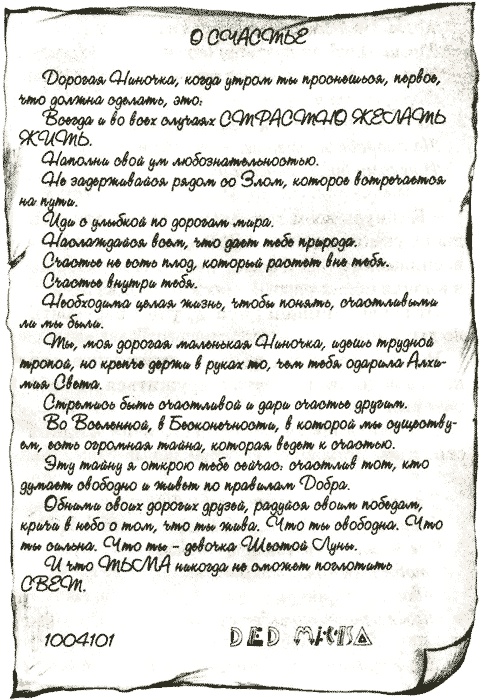 О СЧАСТЬЕ
Дорогая Ниночка, когда утром ты проснешься, первое,
что должна сделать, это:
Всегда и во всех случаях СТРАСТНО ЖЕЛАТЬ
ЖИТЬ.
Наполни свой ум любознательностью.
Не задерживайся рядом со Злом, которое встречается
на пути.
Иди с улыбкой по дорогам мира.
Наслаждайся всем, что дает тебе природа.
Счастье не есть плод, который растет вне тебя.
Счастье внутри тебя.
Необходима целая жизнь, чтобы понять, счастливыми
ли мы были.
Ты, моя дорогая маленькая Ниночка, идешь трудной
тропой, но крепче держи в руках то, чем тебя одарила Алхи-
мия Света.
Стремись быть счастливой и дари счастье другим.
Во Вселенной, в Бесконечности, в которой мы существу-
ем, есть огромная тайна, которая ведет к счастью.
Эту тайну я открою тебе сейчас: счастлив тот, кто
думает свободно и живет по правилам Добра.
Обними своих дорогих друзей, радуйся своим победам,
кричи в небо о том, что ты жива. Что ты свободна. Что
ты сильна. Что ты – девочка Шестой Луны.
И что ТЬМА никогда не сможет поглотить
СВЕТ.
1004101 DED MИKKA